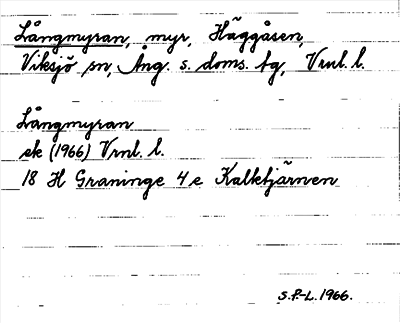 Långmyran, myr, Häggåsen,
Viksjö sn, Ång. s. doms. tg, Vrnl. l.
Långmyran
ek (1966) Vrnl. l.
18 H Graninge 4 e Kalktjärnen
S.P-L. 1966.